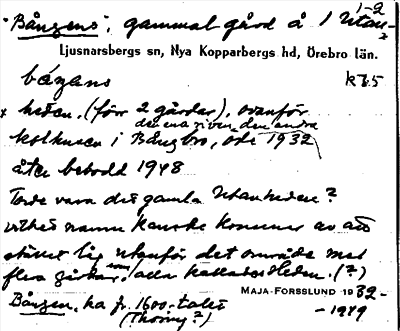 1-2
"Bångens", gammal gård å 1 Utan-
Ljusnarsbergs sn, Nya Kopparbergs hd, Örebro län.
båŋans k7.5
x heden. (förr 2 gårdar), ovanför
den ena riven, den andra
kolhusen i Bångbro, öde 1932
åter bebodd 1948
Torde vara det gamla Utanheden?
vilket namn kanske kommer av att
stället låg utanför det område med
flera gårdar, som alla kallades Heden. (?)
MAJA FORSSLUND 1932-
-1949
Bången, ka fr. 1600-talet
(Thorny?)